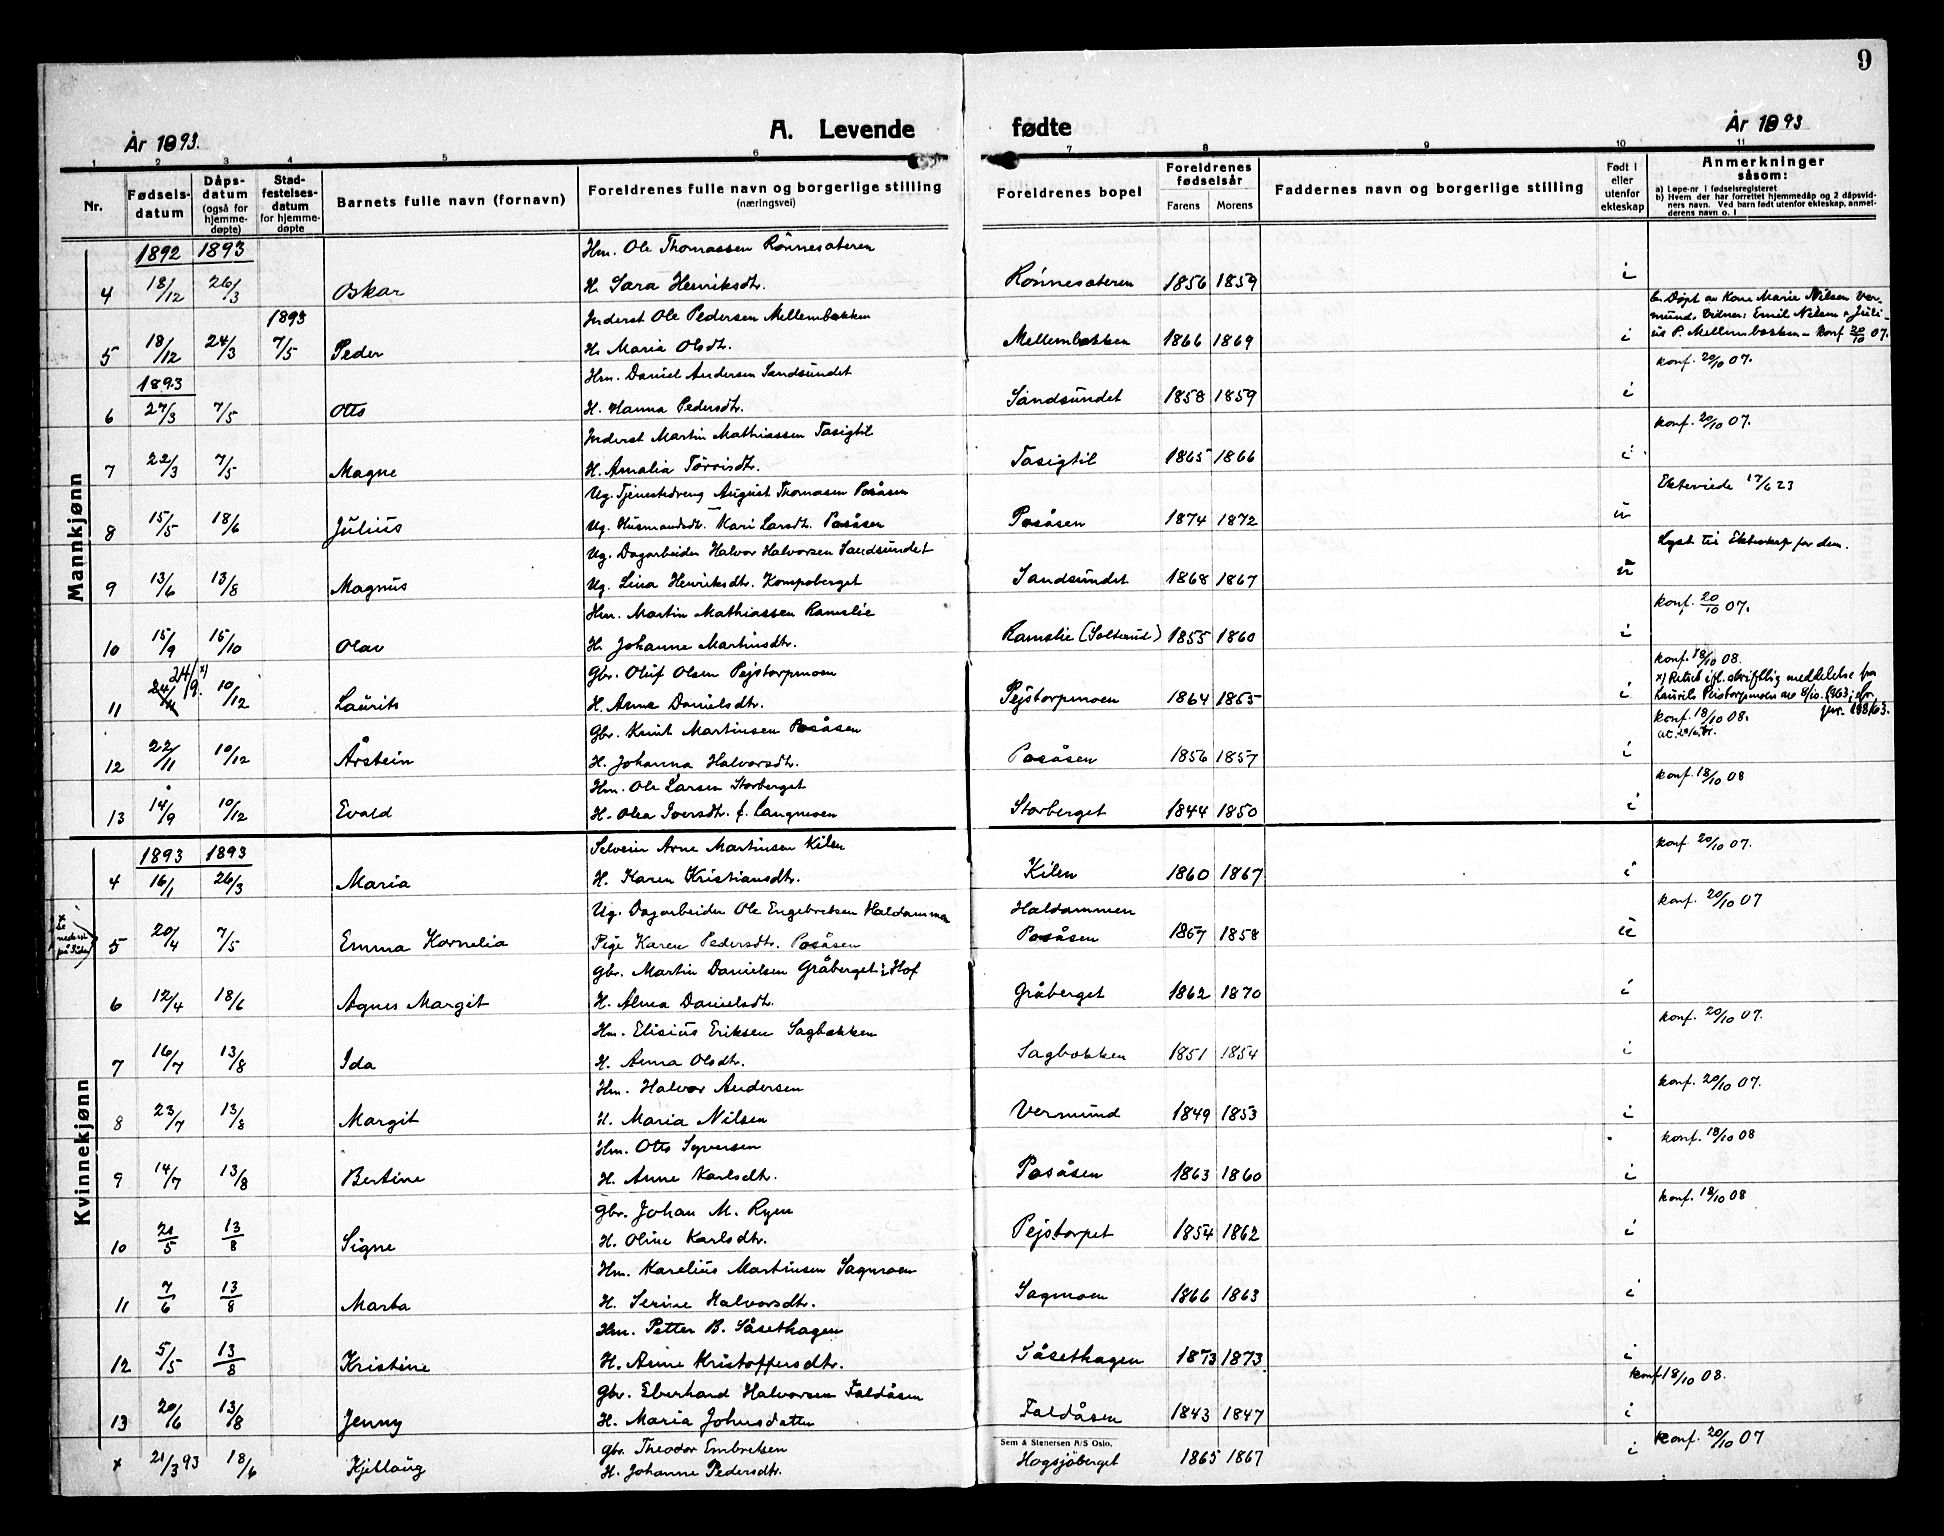 9
År 1893.
A. Levende fødte
År 1893
1 2 3 4 5 6 7 8 9 10 11
Nr.
Fødsels-datum
Dåps-datum (også for hjemme-døpte)
Stad-festelses-datum for hjemme-døpte
Barnets fulle navn (fornavn)
Foreldrenes fulle navn og borgerlige stilling (næringsvei)
Foreldrenes bopel
Foreldrenes fødselsår
Farens Morens
Faddernes navn og borgerlige stilling
Født i eller utenfor ekteskap
Anmerkninger såsom:
a) Løpe-nr i fødselsregisteret
b) Hvem der har forrettet hjemmedåp og 2 dåpsvidners navn. Ved barn født utenfor ekteskap, anmelderens navn o. l
Mannkjønn
1892 1893
Hm. Ole Thomassen Rönnesæteren
4 18/12 26/3 Oskar H. Sara Henriksdtr. Rönnesæteren 1856 1859 i
1893
Inderst Ole Pedersen Mellembækken
b. Døpt av Kone Marie Nilsen Vermund. Vidner: Emil Nilsen & Julius P. Mellembækken – konf 20/10 07.
5 18/12 24/3 7/5 Peder H. Maria Olsdtr. Mellembækken 1866 1869 i
1893
Hm. Daniel Andersen Sandsundet
konf. 20/10 07.
6 27/3 7/5 Otto H. Hanna Pedersdtr. Sandsundet 1858 1859 i
Inderst Martin Mathiassen Tasigtil
konf. 20/10 07.
7 22/3 7/5 Magne H. Amalia Törrisdtr. Tasigtil 1865 1866 i
Ug. Tjenestedreng August Thomasen Posåsen
Ekteviede 17/6 23
8 15/5 18/6 Julius Ug. Husmandsdtr. Kari Larsdtr. Posåsen Posåsen 1874 1872 u
Ug. Dagarbeider Halvor Halvorsen Sandsundet
Lyst til Ekteskap for dem.
9 13/6 13/8 Magnus Ug. Lina Henriksdtr. Kompoberget Sandsundet 1868 1867 u
Hm. Martin Mathiassen Ramslie
konf. 20/10 07.
10 15/9 15/10 Olav H. Johanne Martinsdtr. Ramslie (Solterud) 1855 1860 i
24/9. x)
Gbr. Oluf Olsen Pejstorpmoen
konf. 18/10 08.
x) Rettet ifl. skriftlig meddelelse fra Laurits Peistorpmoen av 8/10. 1963; cfr. jnr. 188/63.
11 24/11 10/12 Laurits H. Anne Danielsdtr. Pejstorpmoen 1864 1865 i
Gbr. Knut Martinsen Posåsen
konf. 18/10 08.
12 22/11 10/12 Årstein H. Johanna Halvorsdtr. Posåsen 1856 1857 i
Hm. Ole Larsen Storberget
konf. 18/10 08
13 14/9 10/12 Evald H. Olea Iversdtr. f. Langmoen Storberget 1844 1850 i
Kvinnekjønn
1893 1893
Selveier Arne Martinsen Kilen
konf 20/10 07.
4 16/1 26/3 Maria H. Karen Kristiansdtr. Kilen 1860 1867 i
x Se nederst på Siden
Ug. Dagarbeider Ole Engebretsen Haldammen Haldammen
konf. 20/10 07
5 20/4 7/5 Emma Kornelia Pige Karen Pedersdtr. Posåsen Posåsen 1867 1858 u
Gbr. Martin Danielsen Gråberget i Hof
6 12/4 18/6 Agnes Margit H. Alma Danielsdtr. Gråberget 1862 1870 i
Hm. Elisius Eriksen Sagbækken
konf. 20/10 07.
7 16/7 13/8 Ida H. Anna Olsdtr. Sagbækken 1851 1854 i
Hm. Halvor Andersen
konf. 20/10 07.
8 23/7 13/8 Margit H. Maria Nilsen Vermund 1849 1853 i
Hm. Otto Syversen
konf. 18/10 08
9 14/7 13/8 Bertine H. Anne Karlsdtr. Posåsen 1863 1860 i
Gbr. Johan M. Ryen
konf. 18/10 08
10 21/5 13/8 Signe H. Oline Karlsdtr. Pejstorpet 1854 1862 i
Hm. Karelius Martinsen Sagmoen
11 7/6 13/8 Marta H. Serine Halvorsdtr. Sagmoen 1866 1863 i
Hm. Petter B. Såsethagen
12 5/5 13/8 Kristine H. Anne Kristoffersdtr. Såsethagen 1873 1873 i
Gbr. Eberhard Halvorsen Faldåsen
konf 18/10 08.
13 20/6 13/8 Jenny H. Maria Johnsdatter Faldåsen 1843 1847 i
Sem & Stenersen A/S Oslo.
Gbr. Theodor Embretsen
konf. 20/10 07
x 21/3 93 18/6 Kjellaug H. Johanne Pedersdtr. Hogsjöberget 1865 1867 i